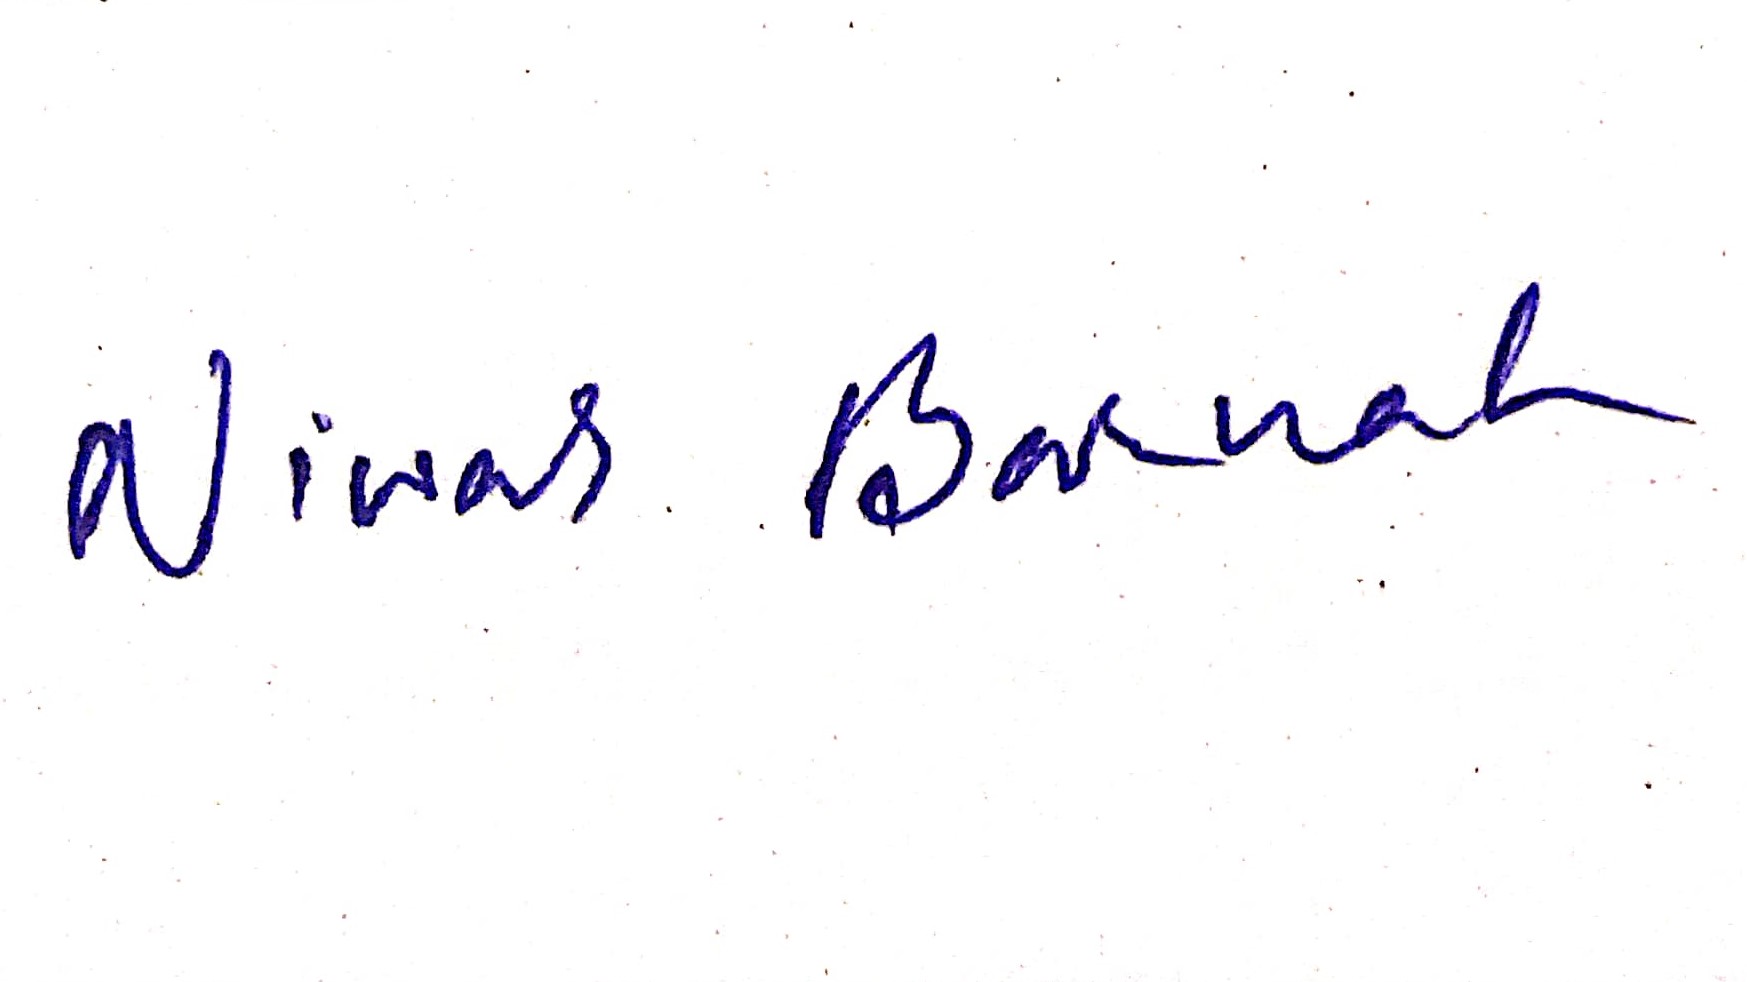 Niwas Baruah